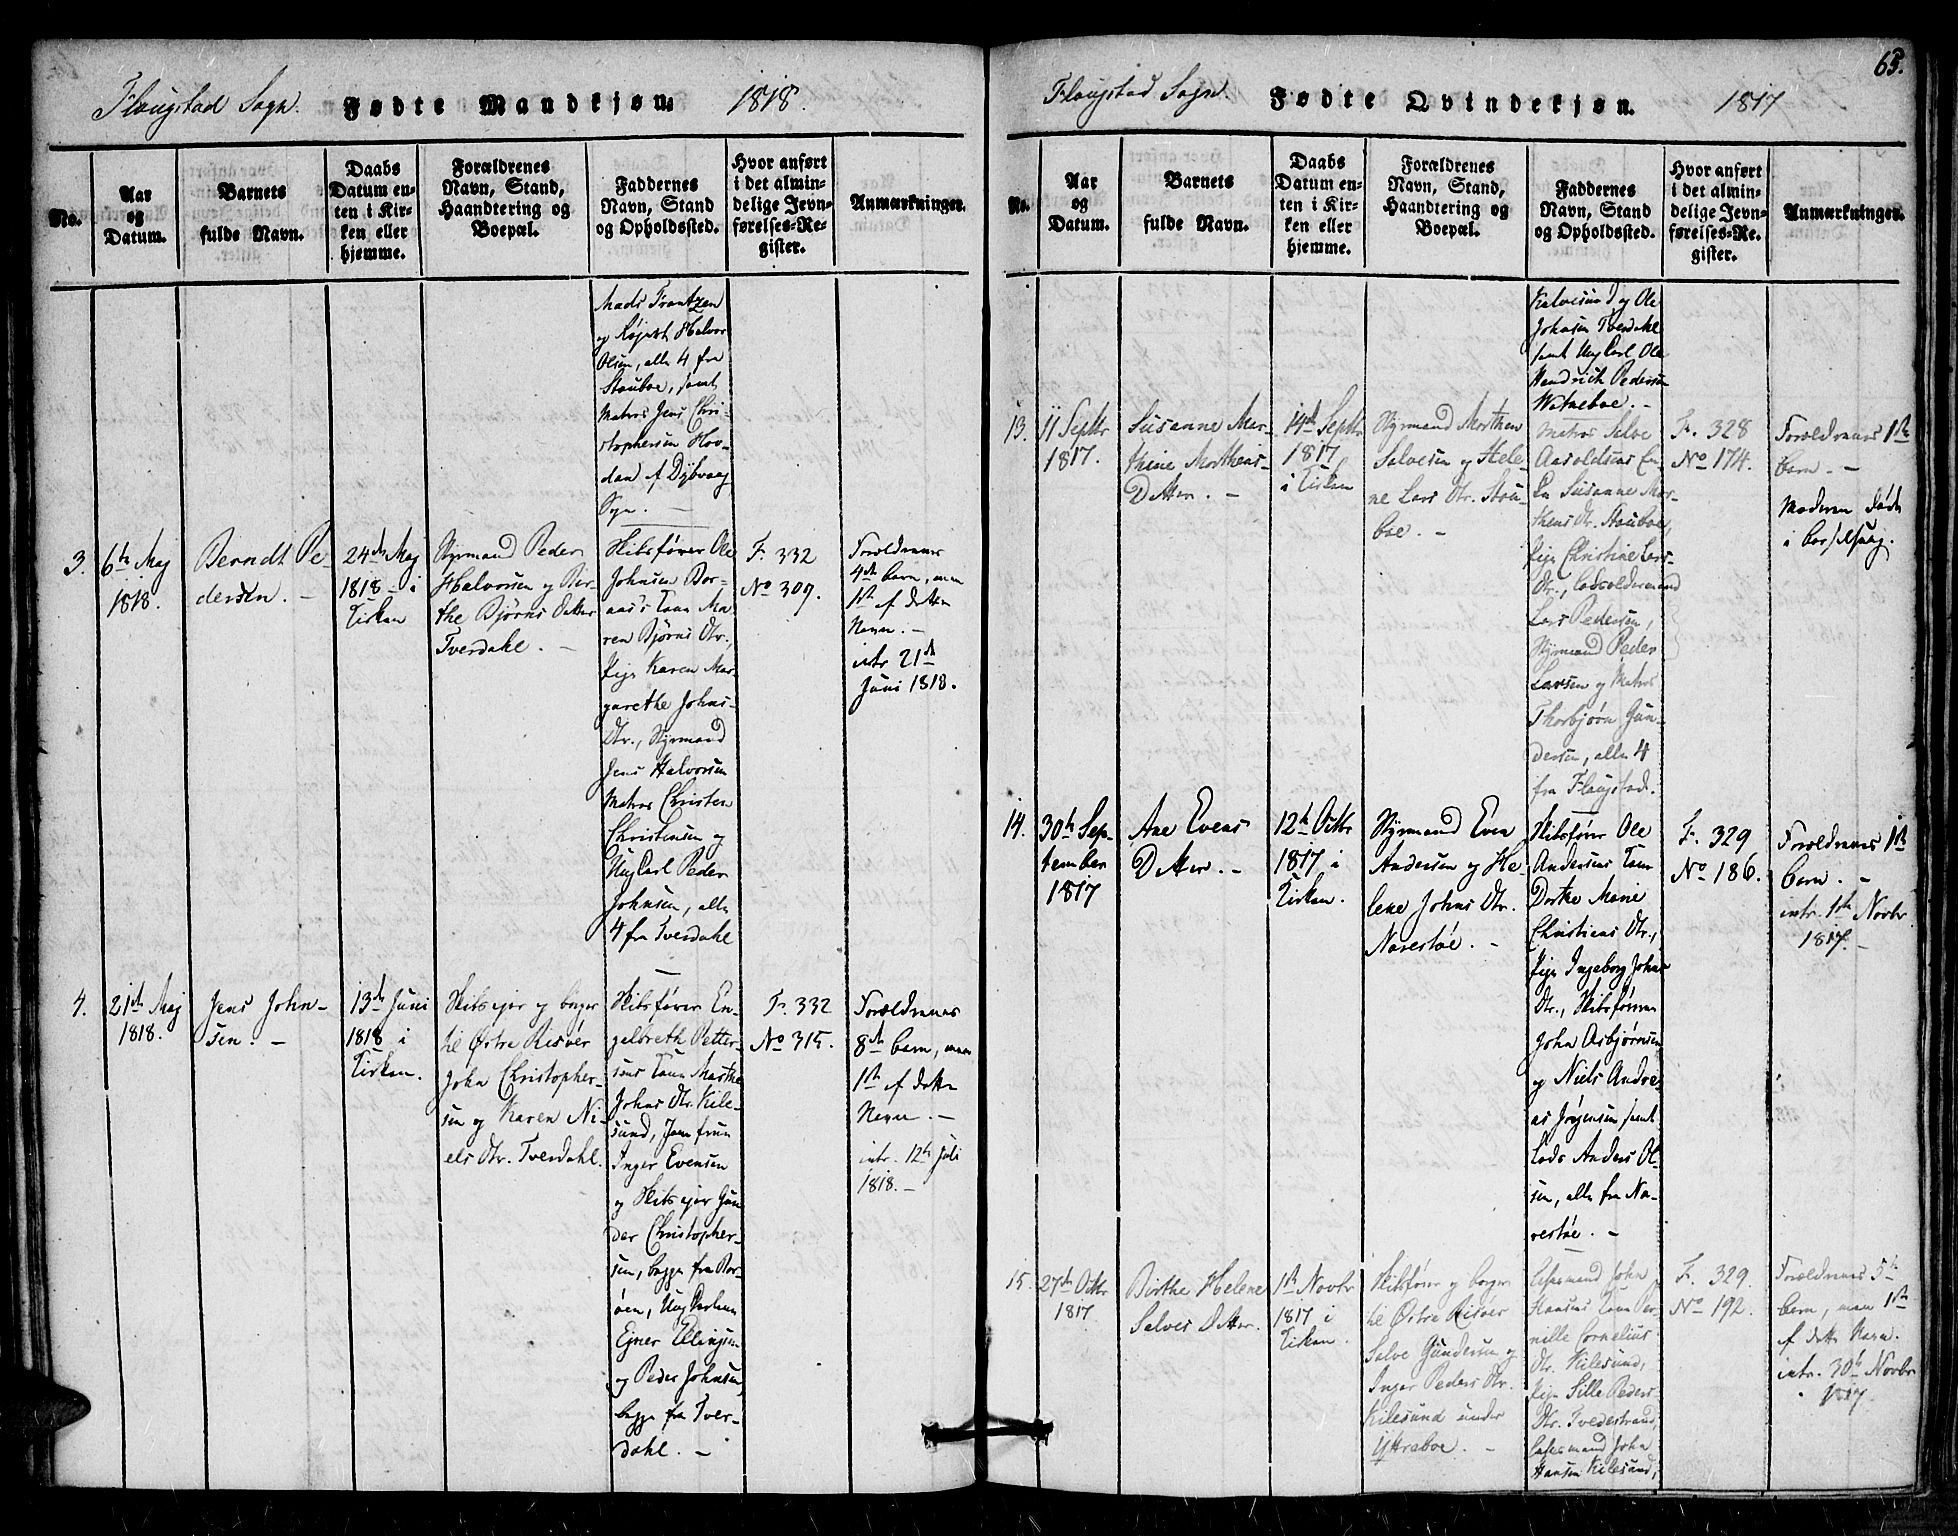 Flaugstad Sogn. Fødte Mandkjøn. 1818.
No.
Aar
og
Datum.
Barnets
fulde Navn.
Daabs
Datum en-
ten i Kir-
ken eller
hjemme.
Forældrenes
Navn, Stand,
Haandtering og
Boepæl.
Faddernes
Navn, Stand
og Opholdssted.
Hvor anført
i det almin-
delige Jevn-
førelses-Re-
gister.
Anmærkninger.
Mads Frantzen
og Halvor
Olsen, alle 4 fra
Stauboe, samt
Matros Jens Chri-
stophersen Hov-
dan af Dybvaag
Sogn. —
3.
6te Maj
1818.
Berndt Pe-
dersen. —
24de Maj
1818 i
Kirken
Styrmand Peder
Halvorsen og Bir-
the Bjørns Datter
Tverdahl. —
Skibsfører Ole
Johnsen Bor-
aas's Kone Ma-
ren Bjørns Dtr.,
Pige Karen Mar-
garethe Johns-
Dtr., Styrmand
Jens Halvorsen
Matros Christen
Christensen og
Ung Carl Peder
Johnsen, alle
4 fra Tverdahl
F. 332
No 309.
Forældrenes
4de barn, men
1ste af dette
Navn. —
intr. 21de
Juni 1818.
4.
21de Maj
1818.
Jens John-
sen. —
13de Juni
1818 i
Kirken.
Skibsejer og borger
til Østre Risøer
John Christopher-
sen og Karen Ni-
els Dtr. Tverdahl.
Skibsfører En-
gelbreth Petter-
sens Kone Marthe
Johns Dtr. Kile-
sund, Jomfrue
Inger Evensen
og Skibsejer Gun-
der Christopher-
sen, begge fra Bor-
øen, Ung Karlene
Ejner Ellingsen
og Peder Johnsen,
begge fra Tver-
dahl. —
F. 332
No 315.
Forældrenes
8de barn, men
1ste af dette
Navn. —
intr. 12te Juli
1818. —
65.
Flaugstad Sogn. Fødte Qvindekjøn. 1817
No.
Aar
og
Datum.
Barnets
fulde Navn.
Daabs
Datum en-
ten i Kir-
ken eller
hjemme.
Forældrenes
Navn, Stand,
Haandtering og
Boepæl.
Faddernes
Navn, Stand
og Opholdssted.
Hvor anført
i det almin-
delige Jevn-
førelses-Re-
gister.
Anmærkninger.
Kalvesund og Ole
Johnsen Tverdahl
samt Ung Carl Ole
Hendrich Pedersen
Watneboe. —
13.
11 Septbr
1817.
Susanne Mar-
thine Morthens-
Datter. —
14de Septbr
1817
i Kirken
Styrmand Morthen
Salvesen og Hele-
ne Lars Dtr. Stau-
boe. —
Matros Salve
Aaroldsens En-
ke Susanne Mor-
thens Dtr. Stauboe,
Pige Christine Lars
Dtr., Lodsoldermand
Lars Pedersen,
Styrmand Peder
Larsen og Matros
Thorbjørn Gun-
dersen, alle 4
fra Flaugstad.
F. 328
No 174.
Forældrenes 1ste
barn. —
Moderen døde
i barselseng.
14.
30te Sep-
tember
1817
Ane Evens
Datter. —
12te Octbr
1817 i
Kirken.
Styrmand Even
Andersen og He-
lene Johns Dtr.
Narestøe. —
Skibsfører Ole
Andersens Kone
Dorthe Marie
Christiens Dtr.,
Pige Ingeborg Johns
Dtr., Skibsførerne
John Asbjørnsen
og Niels Andre-
as Jørgensen samt
Lods Anders Ol-
sen, alle fra Na-
restøe. —
F. 329
No 186.
Forældrenes 1ste
barn. —
intr. 1ste Novbr
1817. —
15.
27de Octbr
1817
Birthe Helene
Salves Datter.
1ste Novbr
1817 i
Kirken.
Skibsfører og borger
til Østre Risøer
Salve Gundersen og
Inger Peders Dtr.
Kilesund under
Yttreboe. —
John
Hansens Kone Per-
nille Cornelius
Dtr. Kilesund,
Pige Sille Peders
Dtr. Tvedestrand,
John
Hansen Kilesund,
F. 329.
No 192.
Forældrenes 5te
barn, men 1ste
af dette Navn.
intr. 30te Novbr
1817.